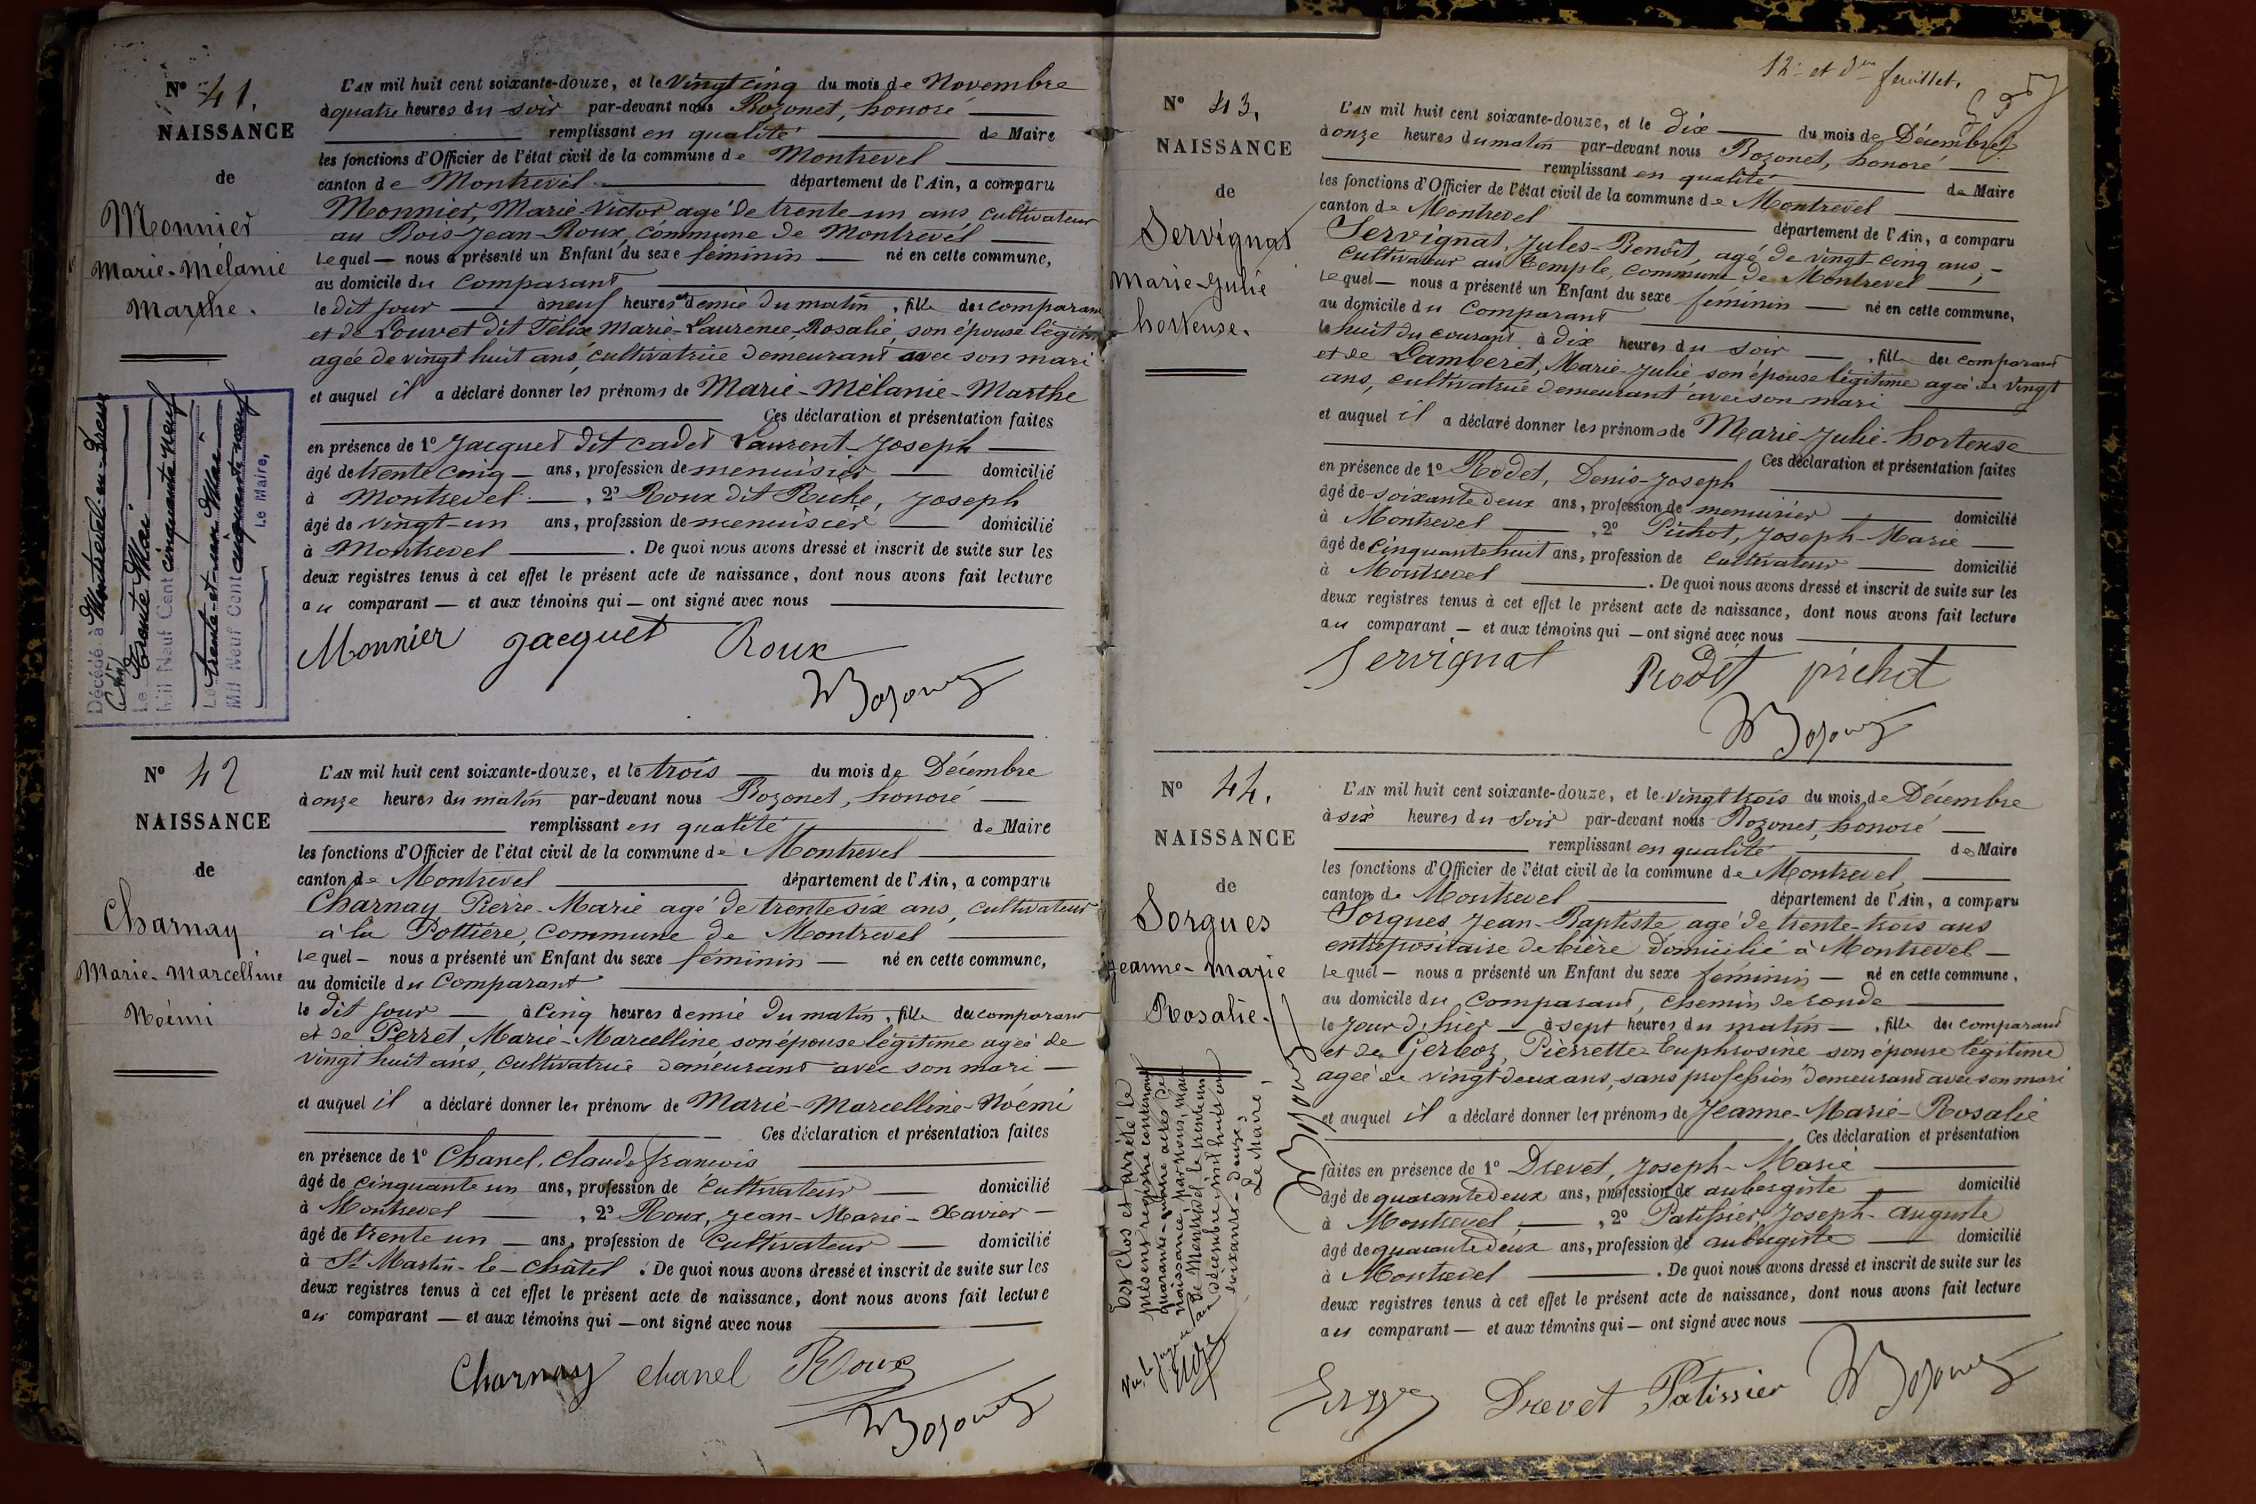 N° 41.
NAISSANCE
de
Monnier
Marie-Mélanie
Marthe.
L'AN mil huit cent soixante-douze, et le Vingt cinq du mois de Novembre
à quatre heures du soir par-devant nous Bozonet, honoré
remplissant en qualité de Maire
les fonctions d'Officier de l'état civil de la commune de Montrevel
canton de Montrevel département de l'Ain, a comparu
Monnier, Marie-Victor, agé de trente-un ans cultivateur
au Bois-Jean-Roux, commune de Montrevel
lequel — nous a présenté un Enfant du sexe féminin — né en cette commune,
au domicile du comparant
le dit jour à neuf heures et demie du matin, fille du comparant
et de Louvet dit Félix Marie-Laurence-Rosalie, son épouse légitime
agée de vingt huit ans, cultivatrice demeurant avec son mari
et auquel il a déclaré donner les prénoms de Marie-Mélanie-Marthe
Ces déclaration et présentation faites
en présence de 1° Jacquet dit cadet Laurent-Joseph
âgé de trente cinq ans, profession de menuisier domicilié
à Montrevel, 2° Roux dit Riche, Joseph
âgé de vingt-un ans, profession de menuisier domicilié
à Montrevel. De quoi nous avons dressé et inscrit de suite sur les
deux registres tenus à cet effet le présent acte de naissance, dont nous avons fait lecture
au comparant — et aux témoins qui — ont signé avec nous
Monnier Jacquet Roux
Bozonet
Décédé à Montrevel-en-Bresse
(Ain)
Le Trente Mai
Mil Neuf Cent cinquante neuf
Le trente-et-un Mai
Mil Neuf Cent cinquante neuf
Le Maire,
N° 42
NAISSANCE
de
Charnay
Marie-Marcelline
Noémi
L'AN mil huit cent soixante-douze, et le trois du mois de Décembre
à onze heures du matin par-devant nous Bozonet, honoré
remplissant en qualité de Maire
les fonctions d'Officier de l'état civil de la commune de Montrevel
canton de Montrevel département de l'Ain, a comparu
Charnay Pierre-Marie agé de trente six ans, cultivateur
à la Pottière, commune de Montrevel
lequel — nous a présenté un Enfant du sexe féminin — né en cette commune,
au domicile du comparant
le dit jour à cinq heures demie du matin, fille du comparant
et de Perret, Marie-Marcelline, son épouse légitime agée de
vingt huit ans, cultivatrice demeurant avec son mari —
et auquel il a déclaré donner les prénoms de Marie-Marcelline-Noémi
Ces déclaration et présentation faites
en présence de 1° Chanel, Claude francois
âgé de cinquante un ans, profession de Cultivateur domicilié
à Montrevel, 2° Roux, Jean-Marie-Xavier
âgé de trente un ans, profession de Cultivateur domicilié
à St Martin-le-Châtel. De quoi nous avons dressé et inscrit de suite sur les
deux registres tenus à cet effet le présent acte de naissance, dont nous avons fait lecture
au comparant — et aux témoins qui — ont signé avec nous
Charnay chanel Roux
Bozonet
12e et der feuillet.
N° 43.
NAISSANCE
de
Servignat
Marie-Julie
hortense.
L'AN mil huit cent soixante-douze, et le dix du mois de Décembre
à onze heures du matin par-devant nous Bozonet, honoré
remplissant en qualité de Maire
les fonctions d'Officier de l'état civil de la commune de Montrevel
canton de Montrevel département de l'Ain, a comparu
Servignat, Jules-Benoît, agé de vingt-cinq ans,
cultivateur au Temple, commune de Montrevel
lequel — nous a présenté un Enfant du sexe féminin — né en cette commune,
au domicile du comparant
le huit du courant à dix heures du soir, fille du comparant
et de Lamberet, Marie-Julie, son épouse légitime agée de vingt
ans, cultivatrice demeurant avec son mari
et auquel il a déclaré donner les prénoms de Marie-Julie-hortense
Ces déclaration et présentation faites
en présence de 1° Rodet, Denis-Joseph
âgé de soixante deux ans, profession de menuisier domicilié
à Montrevel, 2° Pichot, Joseph-Marie
âgé de cinquante huit ans, profession de cultivateur domicilié
à Montrevel. De quoi nous avons dressé et inscrit de suite sur les
deux registres tenus à cet effet le présent acte de naissance, dont nous avons fait lecture
au comparant — et aux témoins qui — ont signé avec nous
Servignat Rodet pichot
Bozonet
N° 44.
NAISSANCE
de
Sorgues
Jeanne-Marie
Rosalie.
L'AN mil huit cent soixante-douze, et le vingt trois du mois de Décembre
à six heures du soir par-devant nous Bozonet, honoré
remplissant en qualité de Maire
les fonctions d'Officier de l'état civil de la commune de Montrevel
canton de Montrevel département de l'Ain, a comparu
Sorgues, Jean-Baptiste agé de trente-trois ans
entrepositaire de bière domicilié à Montrevel
lequel — nous a présenté un Enfant du sexe féminin — né en cette commune,
au domicile du comparant, chemin de ronde
le jour d'hier à sept heures du matin, fille du comparant
et de Gerboz, Pierrette-Euphrosine son épouse légitime
agée de vingt deux ans, sans profession demeurant avec son mari
et auquel il a déclaré donner les prénoms de Jeanne-Marie-Rosalie
Ces déclaration et présentation
faites en présence de 1° Drevet, Joseph-Marie
âgé de quarante deux ans, profession de aubergiste domicilié
à Montrevel, 2° Patissier Joseph-Auguste
âgé de quarante deux ans, profession de aubergiste domicilié
à Montrevel. De quoi nous avons dressé et inscrit de suite sur les
deux registres tenus à cet effet le présent acte de naissance, dont nous avons fait lecture
au comparant — et aux témoins qui — ont signé avec nous
Drevet Patissier Bozonet
Est clos et arrêté le
présent registre contenant
quarante-quatre actes de
naissance, par nous, maire
de Montrevel le trente un
décembre mil huit cent
soixante-douze.
Le Maire.
Bozonet
Vu, le juge de paix